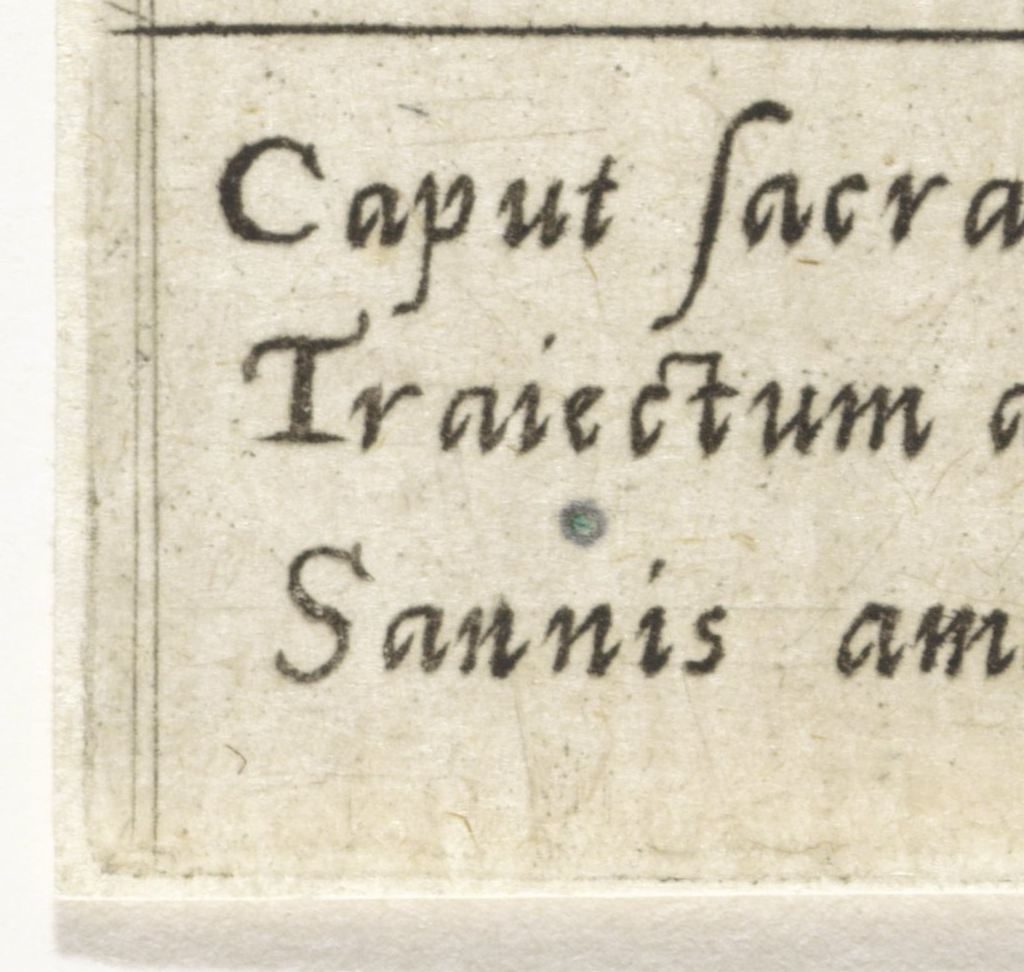 Caput ſacra
Traiectum a
Sannis am